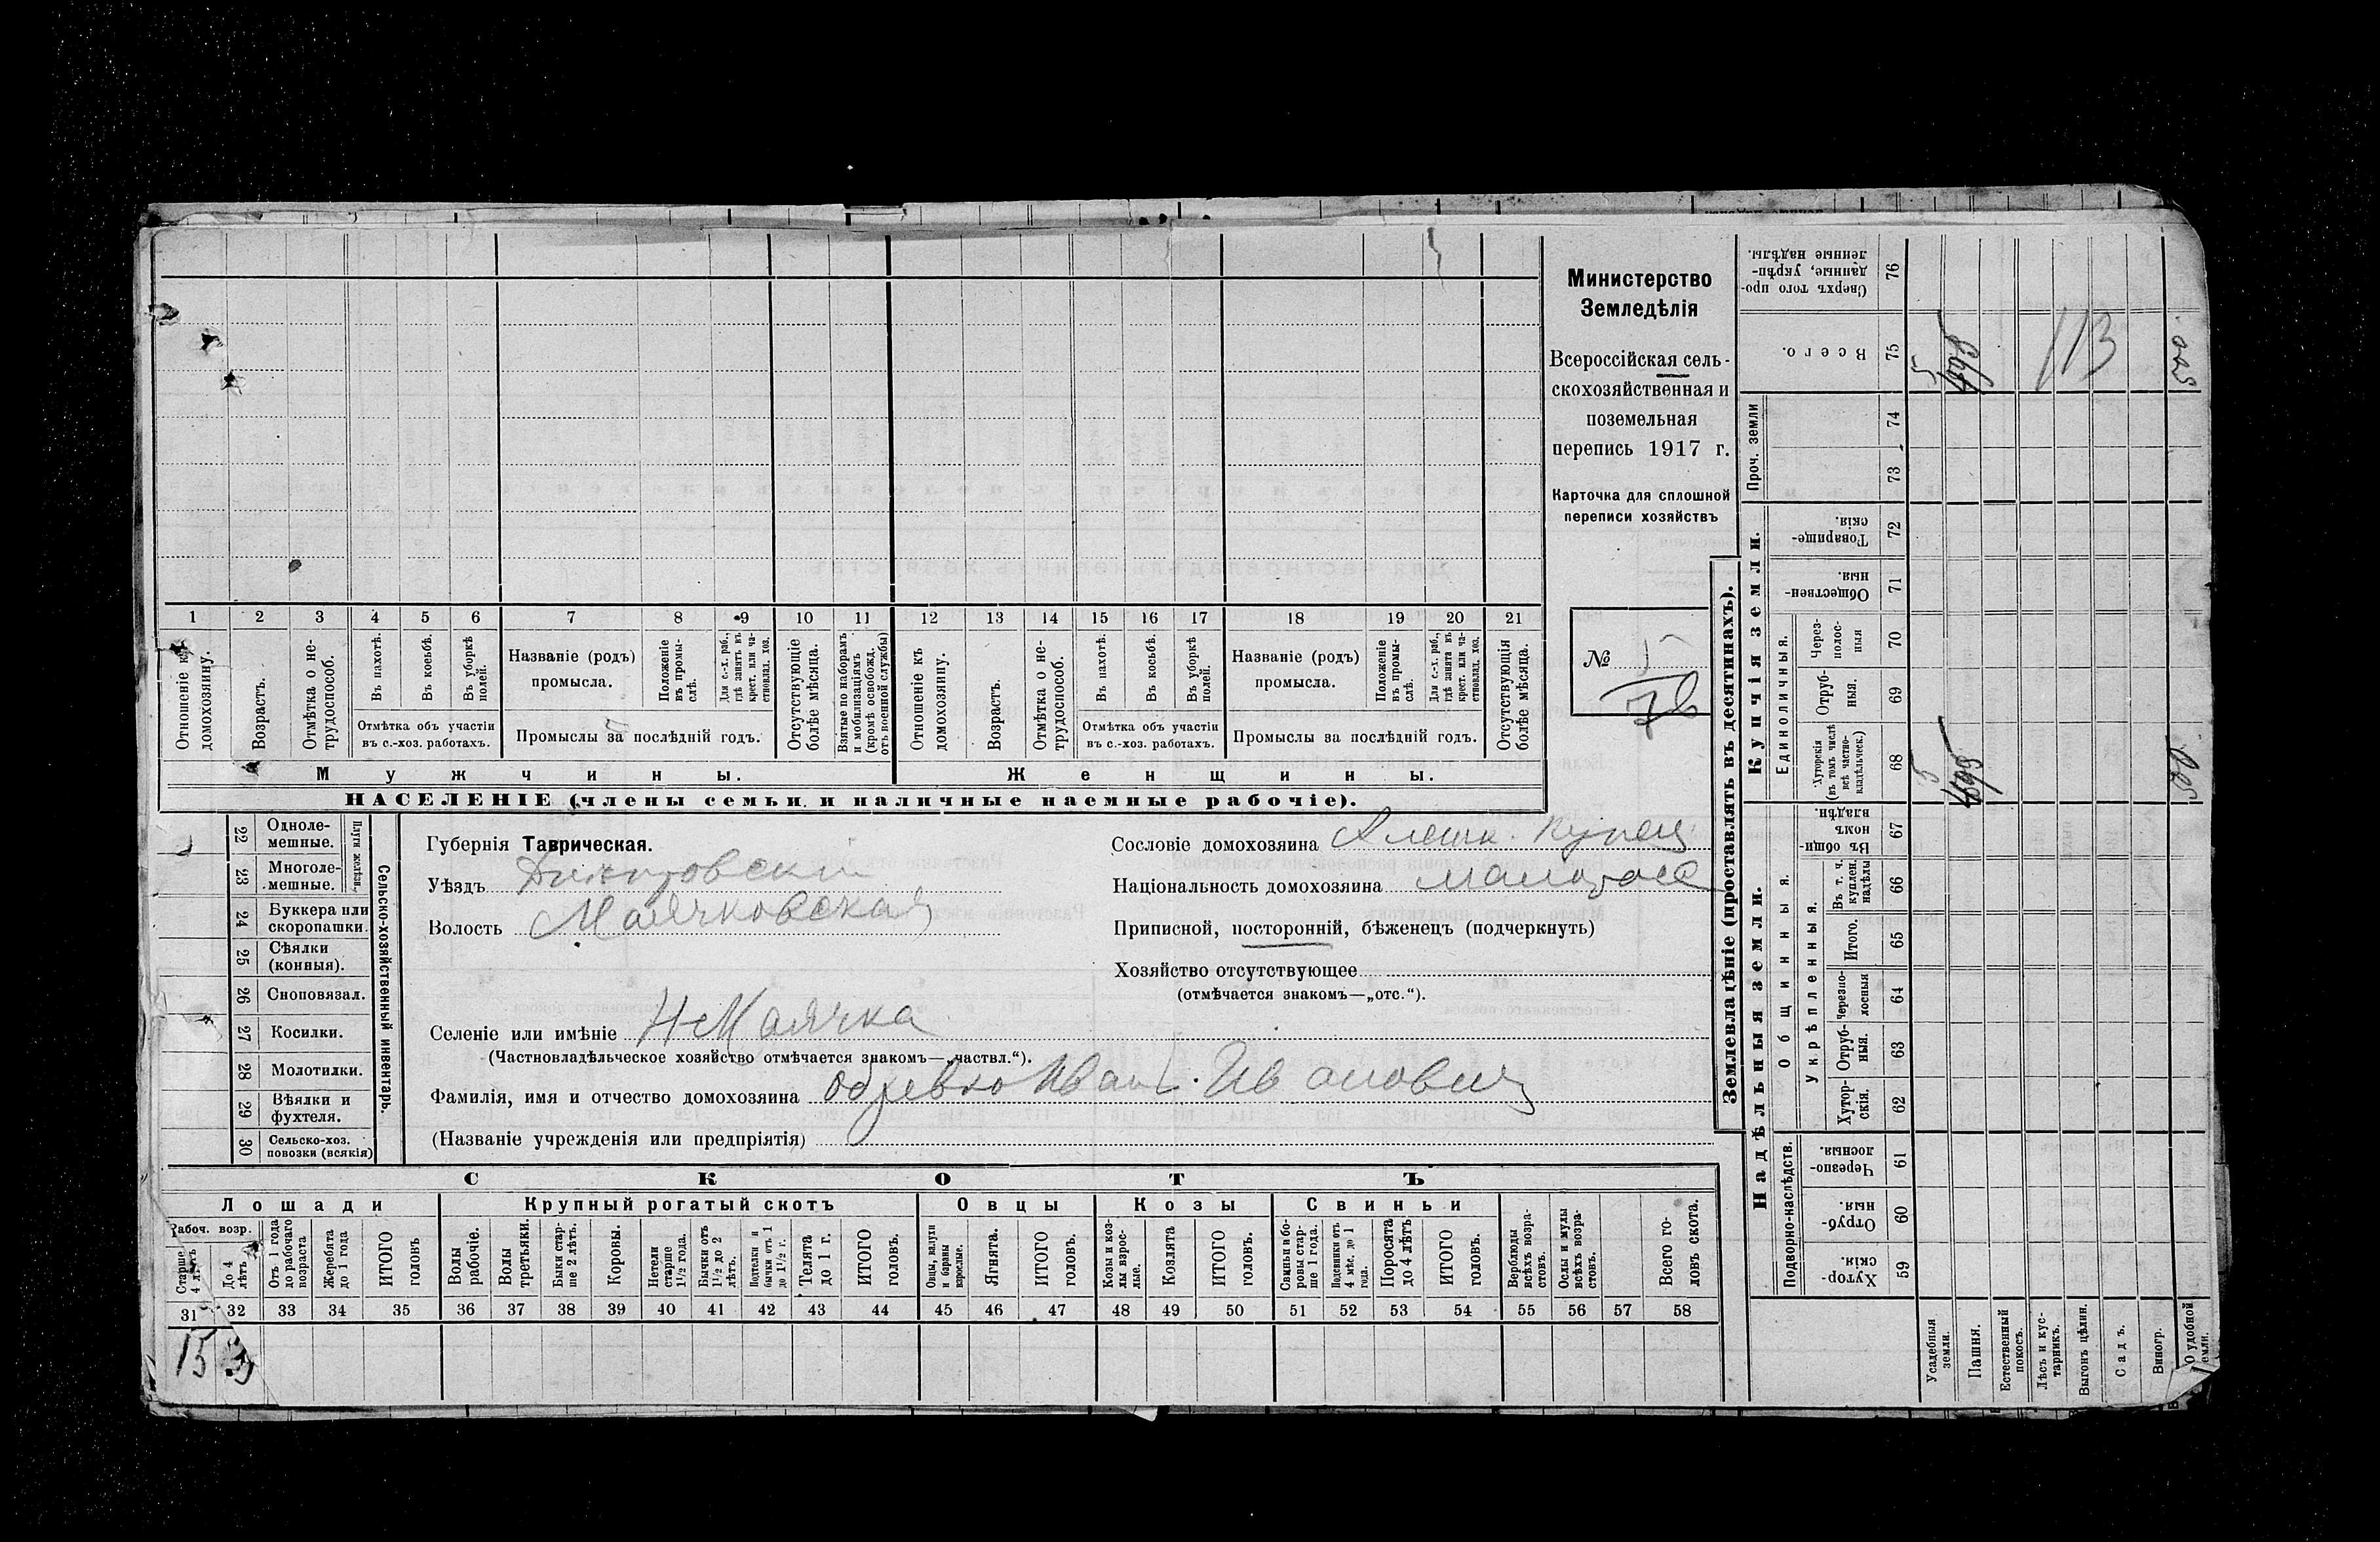 1 2 3 4 5 6 7 8 9 10 11 12 13 14 15 16 17 18 19 20 21
Отношеніе къ домохозяину.
Возрастъ.
Отмѣтка о не-
трудоспособ.
Въ пахотѣ.
Въ косьбѣ.
Въ уборкѣ
полей.
Отмѣтка объ участіи
въ с.-хоз. работахъ.
Названіе (родъ)
промысла.
Положеніе
въ промы-
слѣ.
Для с.-х. раб.,
гдѣ занятъ въ
крест. или ча-
стновлад. хоз.
Промыслы за послѣдній годъ.
Отсутствующіе
болѣе мѣсяца.
Взятые по наборамъ
и мобилизаціямъ
(кромѣ освобожд.
отъ военной службы)
Отношеніе къ
домохозяину.
Возрастъ.
Отмѣтка о не-
трудоспособ.
Въ пахотѣ.
Въ косьбѣ.
Въ уборкѣ
полей.
Отмѣтка объ участіи
въ с.-хоз. работахъ.
Названіе (родъ)
промысла.
Положеніе
въ промы-
слѣ.
Для с.-х. раб.,
гдѣ занята въ
крест. или ча-
стновлад. хоз.
Промыслы за послѣдній годъ.
Отсутствующія
болѣе мѣсяца.
Мужчины.
Женщины.
НАСЕЛЕНІЕ (члены семьи и наличные наемные рабочіе).
Министерство
Земледѣлія
Всероссійская сель-
скохозяйственная и
поземельная
перепись 1917 г.
Карточка для сплошной
переписи хозяйствъ
№
22 Одноле-
мешные.
23 Многоле-
мешные.
Плуги желѣзн.
24 Буккера или
скоропашки.
25 Сѣялки
(конныя).
26 Сноповязал.
27 Косилки.
28 Молотилки.
29 Вѣялки и
фухтеля.
30 Сельско-хоз.
повозки (всякія)
Сельско-хозяйственный инвентарь.
Губернія Таврическая.
Уѣздъ Днѣпровскій
Волость Маячковская
Селеніе или имѣніе Н-Маячка
(Частновладѣльческое хозяйство отмѣчается знакомъ—„частвл.“).
Фамилія, имя и отчество домохозяина Иван Иванович
(Названіе учрежденія или предпріятія)
Сословіе домохозяина Алешк. купец
Національность домохозяина малоросс
Приписной, посторонній, бѣженецъ (подчеркнуть)
Хозяйство отсутствующее
(отмѣчается знакомъ—„отс.“).
СКОТЪ
Лошади
Крупный рогатый скотъ
Овцы
Козы
Свиньи
Рабоч. возр.
Старше
4 лѣтъ
До 4
лѣтъ
Отъ 1 года
до рабочаго
возраста
Жеребята
до 1 года
ИТОГО
головъ
Волы
рабочіе.
Волы
третьяки.
Быки стар-
ше 2 лѣтъ.
Коровы.
Нетели
старше
1½ года.
Бычки отъ
1½ до 2
лѣтъ.
Подтелки и
бычки отъ 1
до 1½ г.
Телята
до 1 г.
ИТОГО
головъ.
Овцы, валухи
и бараны
взрослые.
Ягнята.
ИТОГО
головъ.
Козы и коз-
лы взрос-
лые.
Козлята
ИТОГО
головъ.
Свиньи и бо-
ровы стар-
ше 1 года.
Подсвинки отъ
4 мѣс. до 1
года.
Поросята
до 4 лѣтъ
ИТОГО
головъ.
Верблюды
всѣхъ возра-
стовъ.
Ослы и мулы
всѣхъ возра-
стовъ.
Всего го-
ловъ скота.
31 32 33 34 35 36 37 38 39 40 41 42 43 44 45 46 47 48 49 50 51 52 53 54 55 56 57 58
153
Землевладѣніе (проставлять въ десятинахъ).
Купчія земли.
Надѣльныя земли.
Сверхъ того про-
данные, укрѣп-
ленные надѣлы.
76
Всего.
75
113
Проч. земли
74
73
Товарище-
скія.
72
Обществен-
ныя.
71
Единоличныя.
Через-
полос-
ныя
70
Отруб-
ныя.
69
Хуторскія
(въ томъ числѣ
всѣ частно-
владѣльческ.)
68
Общинныя.
Въ общи-
номъ
владѣн.
67
Укрѣпленныя.
Въ т. ч.
куплен.
надѣлы
66
Итого.
65
Черезпо-
лосныя
64
Отруб-
ныя.
63
Хутор-
скія.
62
Подворно-наслѣдств.
Черезпо-
лосныя.
61
Отруб-
ныя.
60
Хутор-
скія.
59
Усадебныя
земли.
Пашня.
Естественный
покосъ.
Лѣсъ и кус-
тарникъ.
Выгонъ цѣлин.
Садъ.
Виногр.